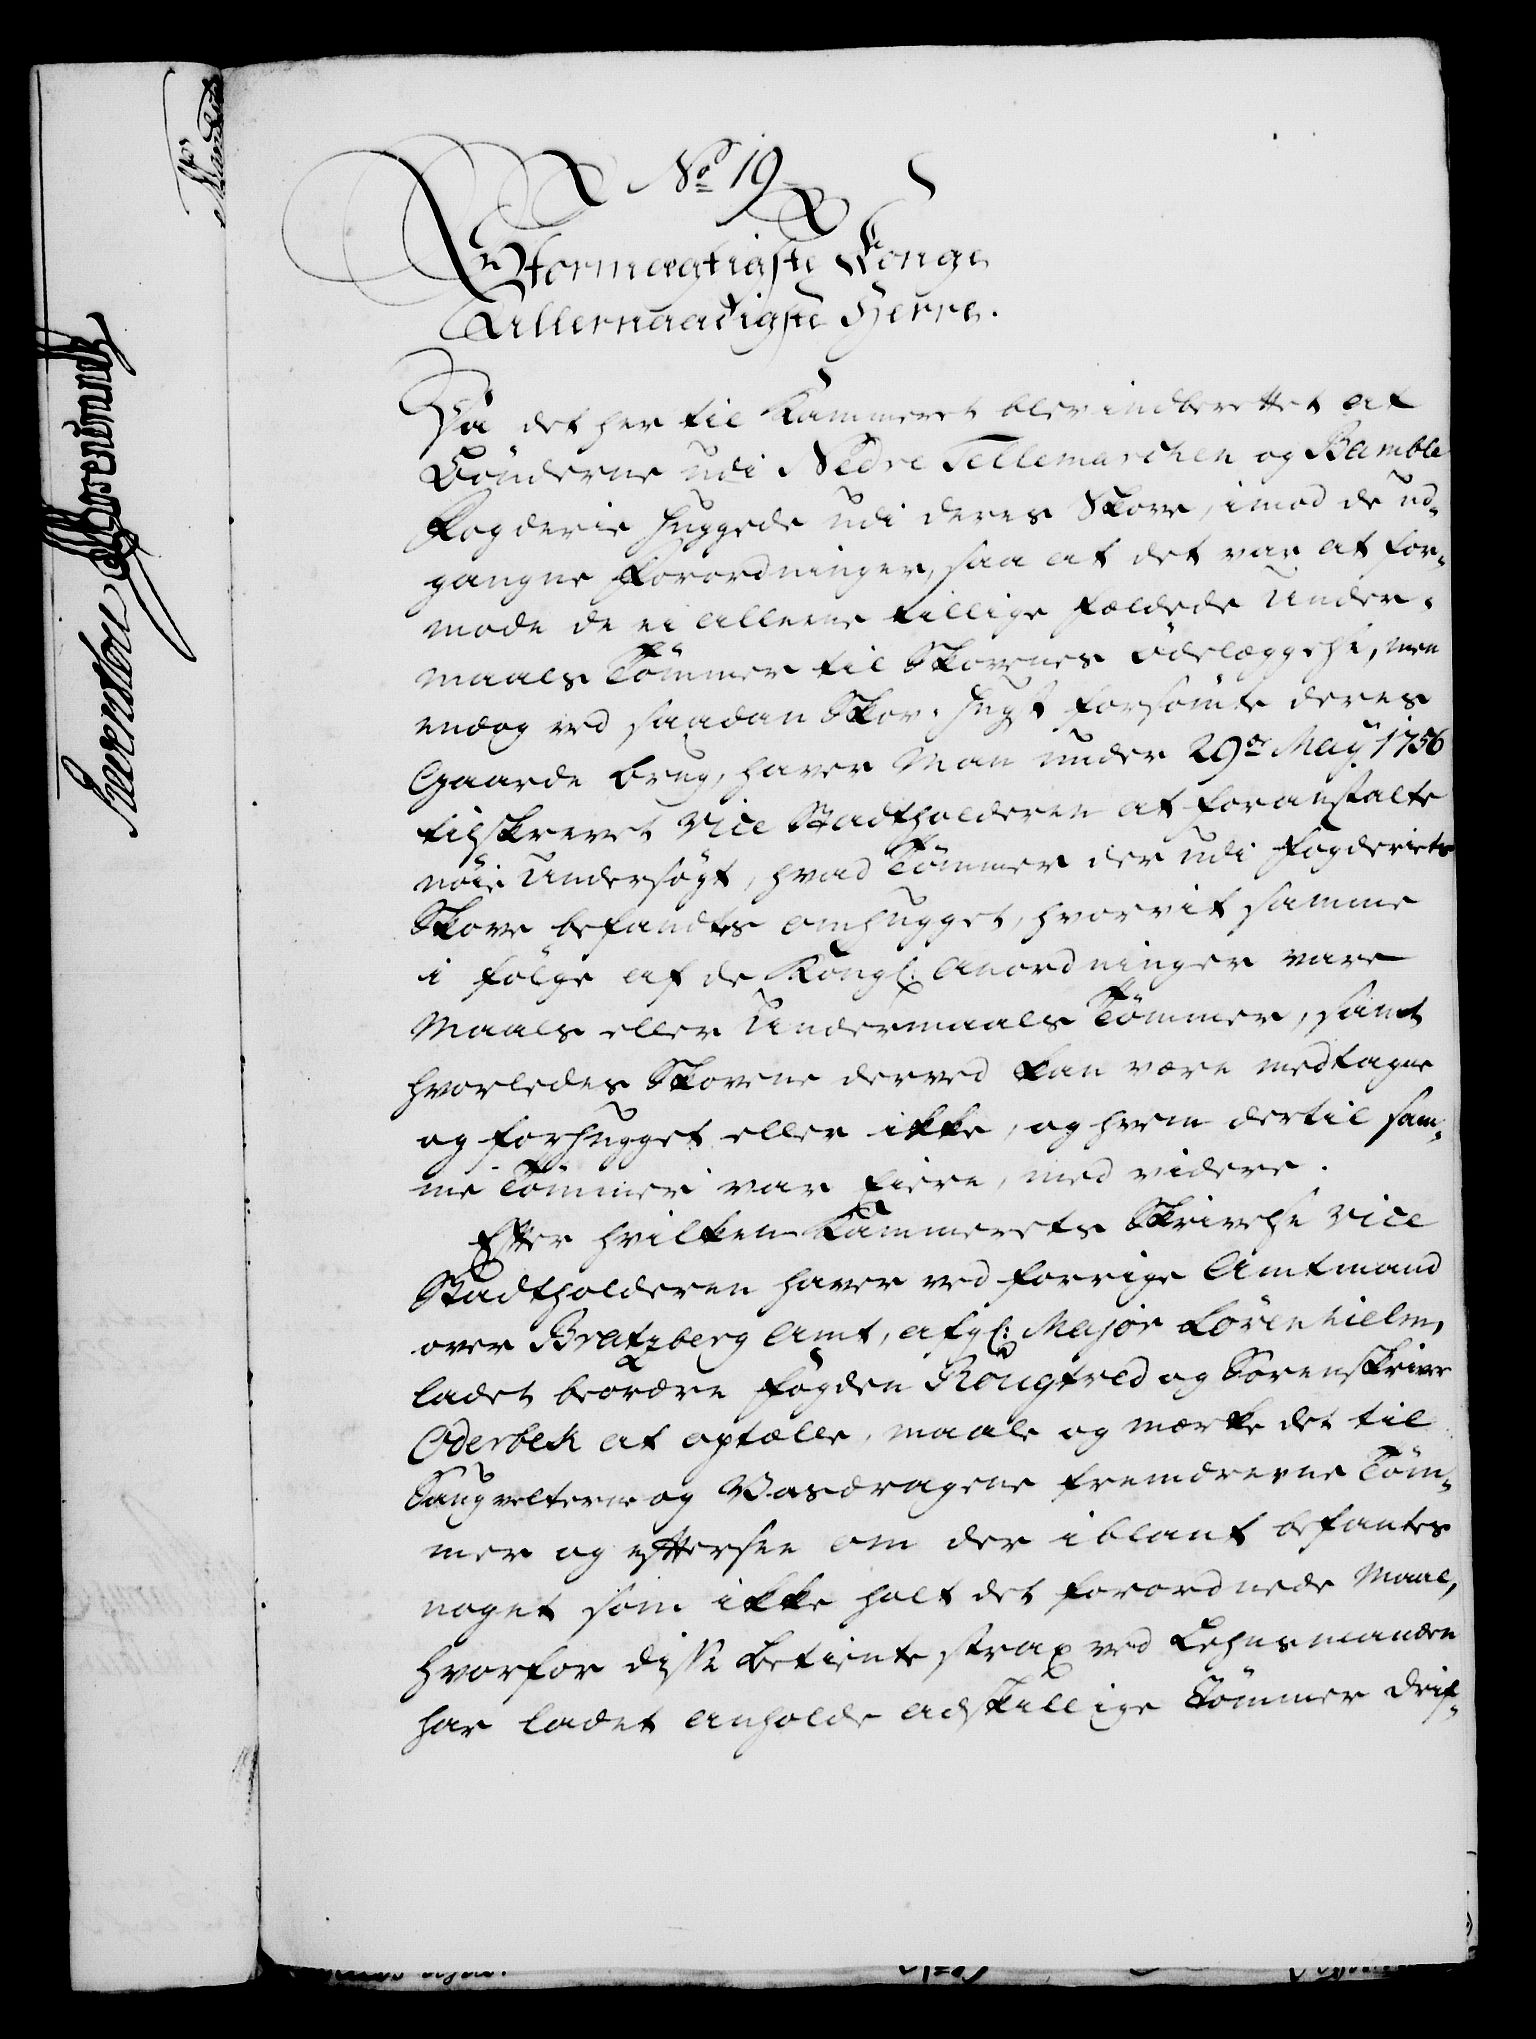 No 19
Stormægtigste Konge
Allernaadigste Herre.
Da det her til Kammeret blev indberettet at
Bönderne udi Nedre Tellemarchen og Bamble
Fogderie huggede udi deres Skove, imod de ud-
gangne Forordninger, saa at det var at for-
mode de ei alleene tillige fældede Under-
maals Tömmer til Skovenes ödelæggelse, men
endog ved saadan Skov-Hugst forsömte deres
Gaarde brug, haver Man under 29de Maÿ 1756
tilskrevet Vice Stadtholderen at foranstalte
nöie Undersögt, hvad Tömmer der udi Fogderiets
Skove befandtes omhugget, hvorvit samme
i fölge af de Kongl: Anordninger vare
Maals eller Undermaals Tömmer, samt
hvorledes Skovene derved kan være medtagne
og forhugget eller ikke, og hvem dertil sam-
me Tömmer var Eiere, med videre.
Efter hvilken Kammerets Skrivelse Vice
Stadtholderen haver ved forrige Amtmand
over Bratzberg Amt, afgl: Major Lövenhielm,
ladet beordre Fogden Rougtved og Sorenskriver
Oderbek at optælle, maale og mærke det til
Saugvelterne og Vasdragene fremdrevne Töm-
mer og eftersee om der iblant befantes
noget som ikke holt det forordnede Maal,
hvorfor disse Betiente strax ved Lehnsmanden
har ladet anholde adskillige Tömmer Drif-